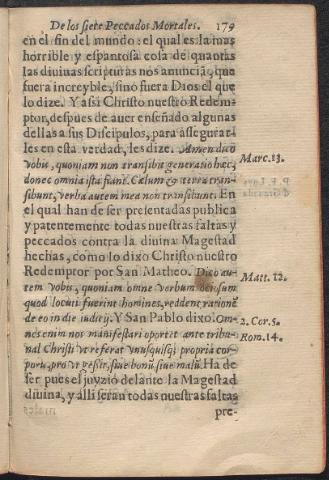 De los siete Peccados Mortales. 179
en el fin del mundo: el qual es la mas
horrible y espantosa cosa de quantas
las diuinas scripturas nos anunciã, que
fuera increyble, sino fuera Dios el que
lo dize. Y assi Christo nuestro Redem-
ptor, despues de auer enseñado algunas
dellas a sus Discipulos, para assegurar-
les en esta verdad, les dize. Amen dico
vobis, quoniam non transibit generatio hæc,
donec omnia ista fiant. Cælum & terra tran-
sibunt, verba autem mea non transibunt. En
el qual han de ser presentadas publica
y patentemente todas nuestras faltas y
peccados contra la diuina Magestad
hechas, como lo dixo Christo nuestro
Redemptor por San Matheo. Dico au-
tem vobis, quoniam omne verbum otiosum
quod locuti fuerint homines, reddent rationẽ
de eo in die iudicij. Y San Pablo dixo. Om-
nes enim nos manifestari oportet ante tribu-
nal Christi vt referat vnusquisq; propria cor-
poris, pro vt gessit, siue bonũ, siue malũ. Ha de
ser pues el juyzio delante la Magestad
diuina, y alli seran todas nuestras faltas
pre-
Marc. 13.
Matt. 12.
2. Cor. 5.
Rom. 14.